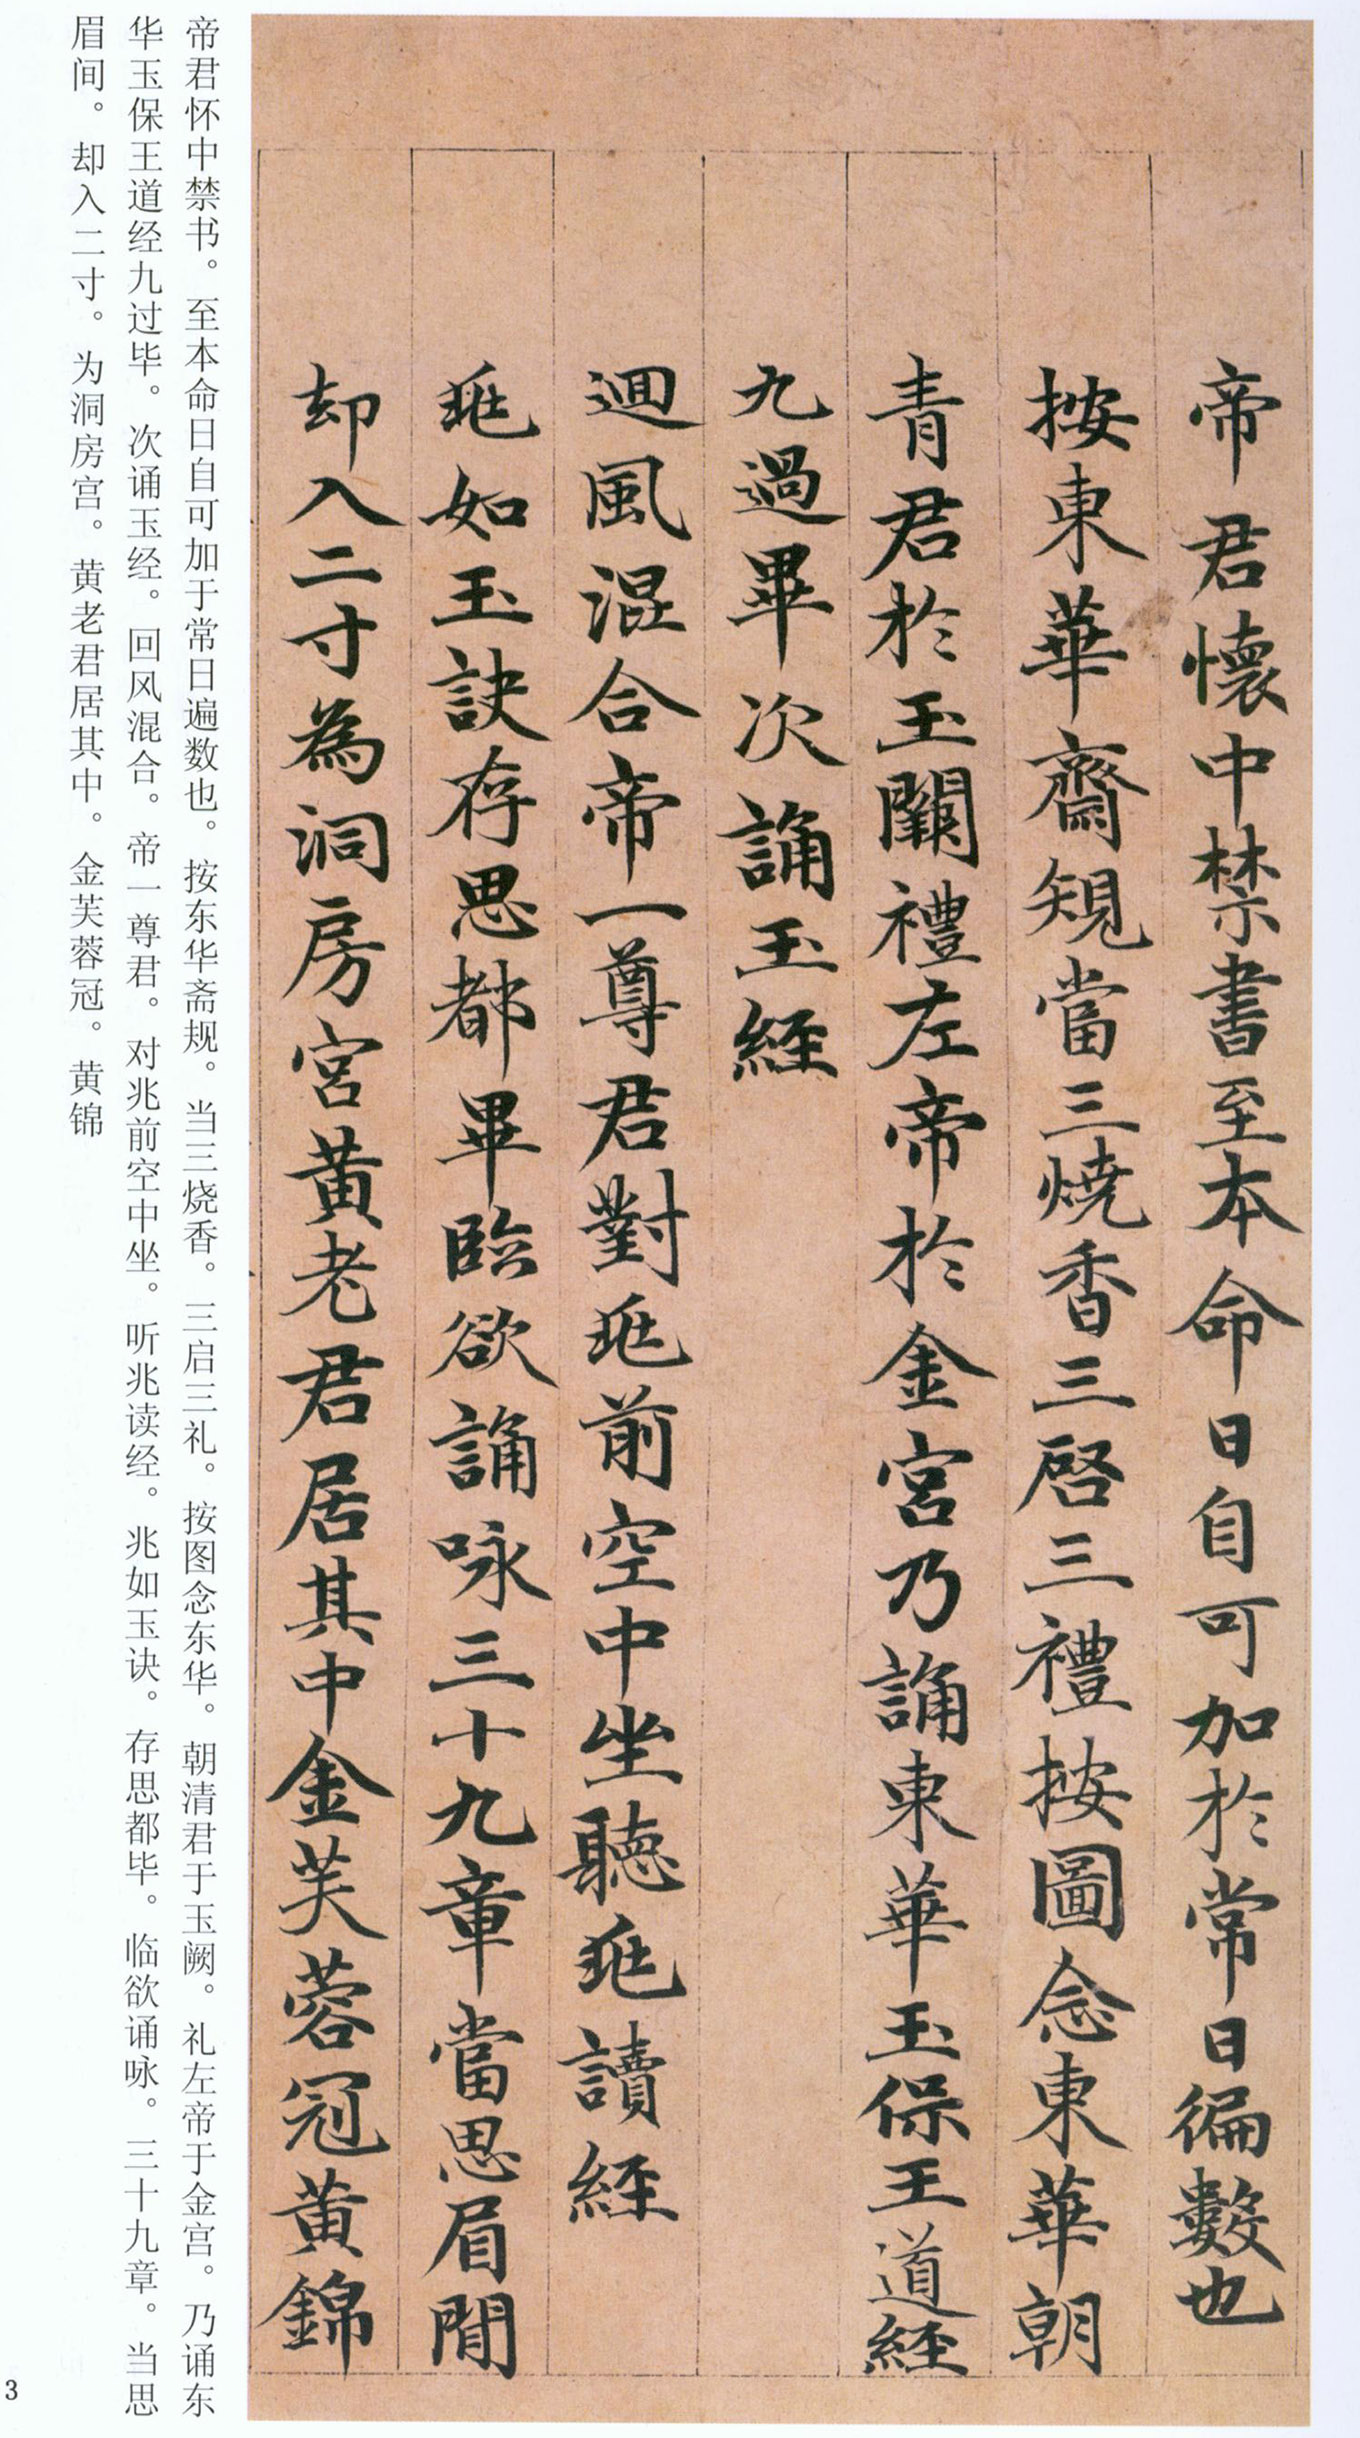 帝君懷中禁書至本命日自可加於常日徧數也
按東華齋規當三燒香三啓三禮按圖念東華朝
青君於玉闕禮左帝於金宮乃誦東華玉保王道經
九過畢次誦玉經
迴風混合帝一尊君對兆前空中坐聽兆讀經
兆如玉訣存思都畢臨欲誦咏三十九章當思眉間
却入二寸為洞房宮黃老君居其中金芙蓉冠黃錦
帝君怀中禁书。至本命日自可加于常日遍数也。按东华斋规。当三烧香。三启三礼。按图念东华。朝清君于玉阙。礼左帝于金宫。乃诵东
华玉保王道经九过毕。次诵玉经。回风混合。帝一尊君。对兆前空中坐。听兆读经。兆如玉诀。存思都毕。临欲诵咏。三十九章。当思
眉间。却入二寸。为洞房宫。黄老君居其中。金芙蓉冠。黄锦
3